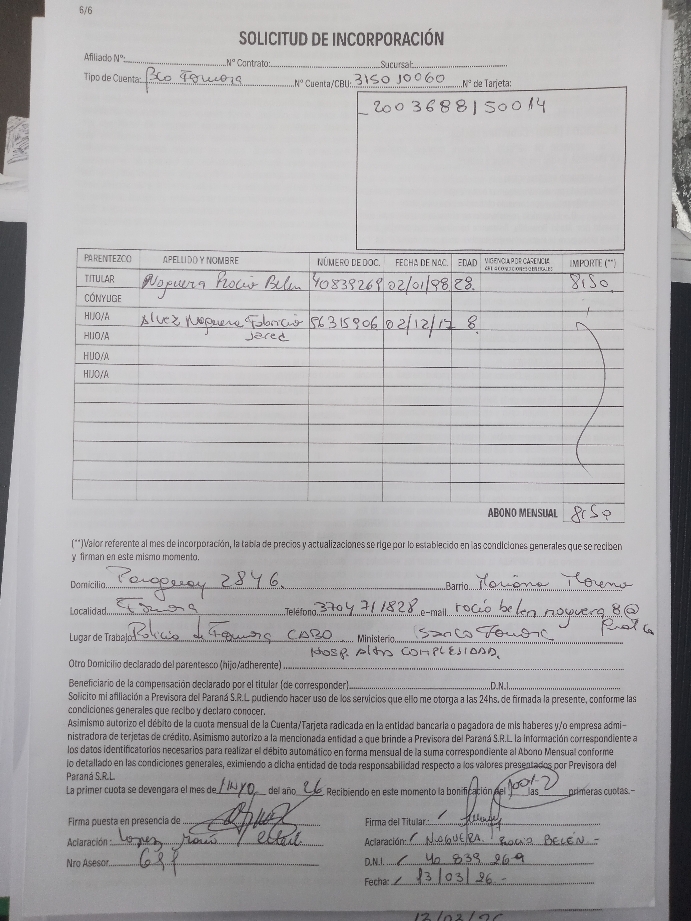 6/6
SOLICITUD DE INCORPORACIÓN
Afiliado Nº: Nº Contrato: Sucursal:
Tipo de Cuenta: Bco Formosa Nº Cuenta/CBU: 315010060 Nº de Tarjeta:
2003688150014
PARENTEZCO APELLIDO Y NOMBRE NÚMERO DE DOC. FECHA DE NAC. EDAD VIGENCIA POR CARENCIA IMPORTE (**)
TITULAR Noguera Rocio Belen 40839269 02/01/98 28. 8150
CÓNYUGE
HIJO/A Alvez Noguera Fabricio 56315906 02/12/17 8
HIJO/A Jared
HIJO/A
HIJO/A
ABONO MENSUAL 8150
(**)Valor referente al mes de incorporación, la tabla de precios y actualizaciones se rige por lo establecido en las condiciones generales que se reciben
y firman en este mismo momento.
Domicilio Paraguay 2846. Barrio Mariano Moreno
Localidad Formosa Teléfono 3704711828 e-mail rocio belen noguera 8@
Lugar de Trabajo Policia de Formosa CABO Ministerio Formosa
HOSP. ALTA COMPLEJIDAD.
Otro Domicilio declarado del parentesco (hijo/adherente)
Beneficiario de la compensación declarado por el titular (de corresponder) D.N.I.
Solicito mi afiliación a Previsora del Paraná S.R.L. pudiendo hacer uso de los servicios que ello me otorga a las 24hs. de firmada la presente, conforme las
condiciones generales que recibo y declaro conocer.
Asimismo autorizo el débito de la cuota mensual de la Cuenta/Tarjeta radicada en la entidad bancaria o pagadora de mis haberes y/o empresa admi-
nistradora de terjetas de crédito. Asimismo autorizo a la mencionada entidad a que brinde a Previsora del Paraná S.R.L. la información correspondiente a
los datos identificatorios necesarios para realizar el débito automático en forma mensual de la suma correspondiente al Abono Mensual conforme
lo detallado en las condiciones generales, eximiendo a dicha entidad de toda responsabilidad respecto a los valores presentados por Previsora del
Paraná S.R.L.
La primer cuota se devengara el mes de del año 26 Recibiendo en este momento la bonificación del 100% las 2 primeras cuotas.-
Firma puesta en presencia de Firma del Titular:
Aclaración: Lopez Aclaración: NOGUERA ROCIO BELÉN -
Nro Asesor D.N.I. 40 839 269
Fecha: 13/03/26 -
13/03/26